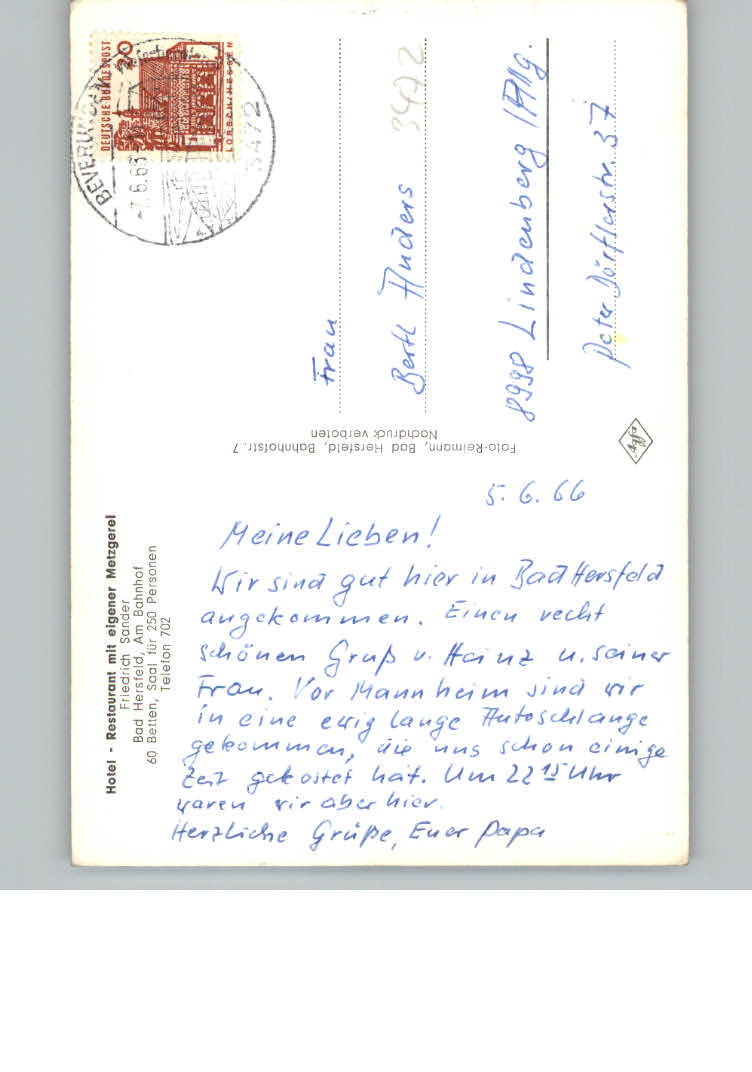 DEUTSCHE BUNDESPOST
20
LORSCH/HESSEN
BEVERUNGEN
-7.6.66
3472
3472
Frau
Bertl Anders
8998 Lindenberg /Allg.
Peter Dörflerstr. 37
Foto-Reimann, Bad Hersfeld, Bahnhofstr. 7
Nachdruck verboten
Agfa
Hotel - Restaurant mit eigener Metzgerei
Friedrich Sander
Bad Hersfeld, Am Bahnhof
60 Betten, Saal für 250 Personen
Telefon 702
5.6.66
Meine Lieben!
Wir sind gut hier in Bad Hersfeld
angekommen. Einen recht
schönen Gruß v. Heinz u. seiner
Frau. Vor Mannheim sind wir
in eine ewig lange Autoschlange
gekommen, die uns schon einige
Zeit gekostet hat. Um 22 15 Uhr
waren wir aber hier.
Herzliche Grüße, Euer Papa